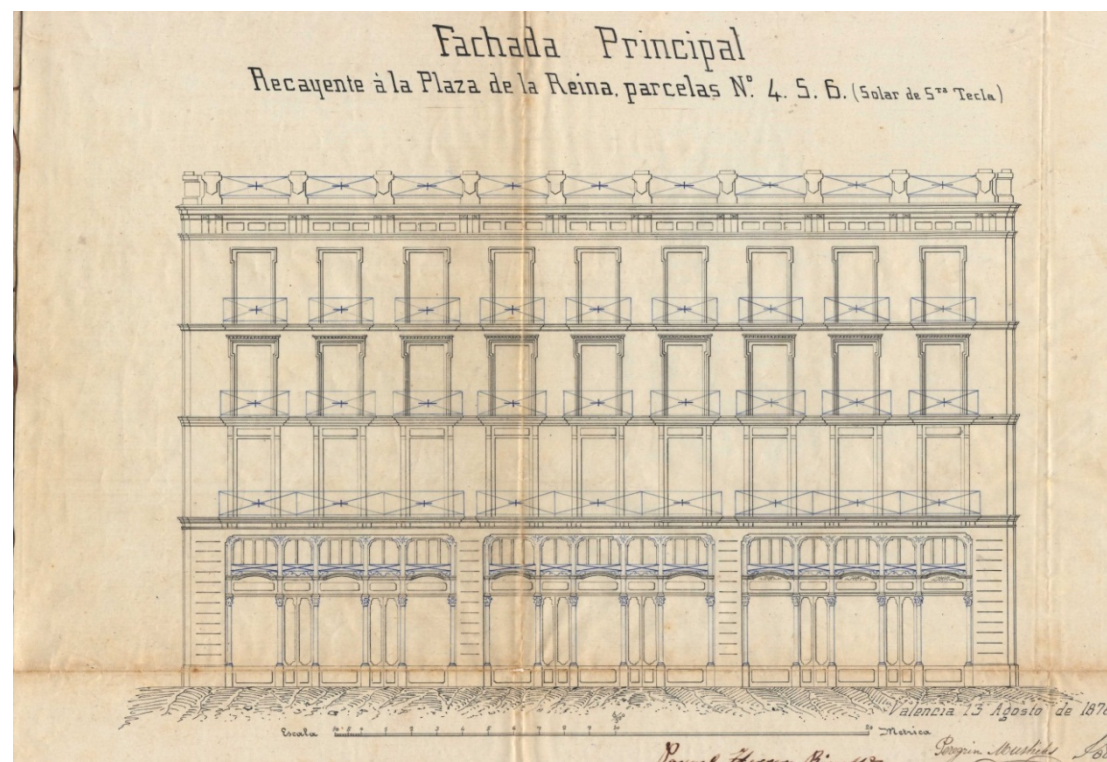 Fachada Principal
Recayente á la Plaza de la Reina, parcelas Nº. 4. 5. 6. (Solar de Sta Tecla)
Valencia 13 Agosto de 187
Escala
Metrica